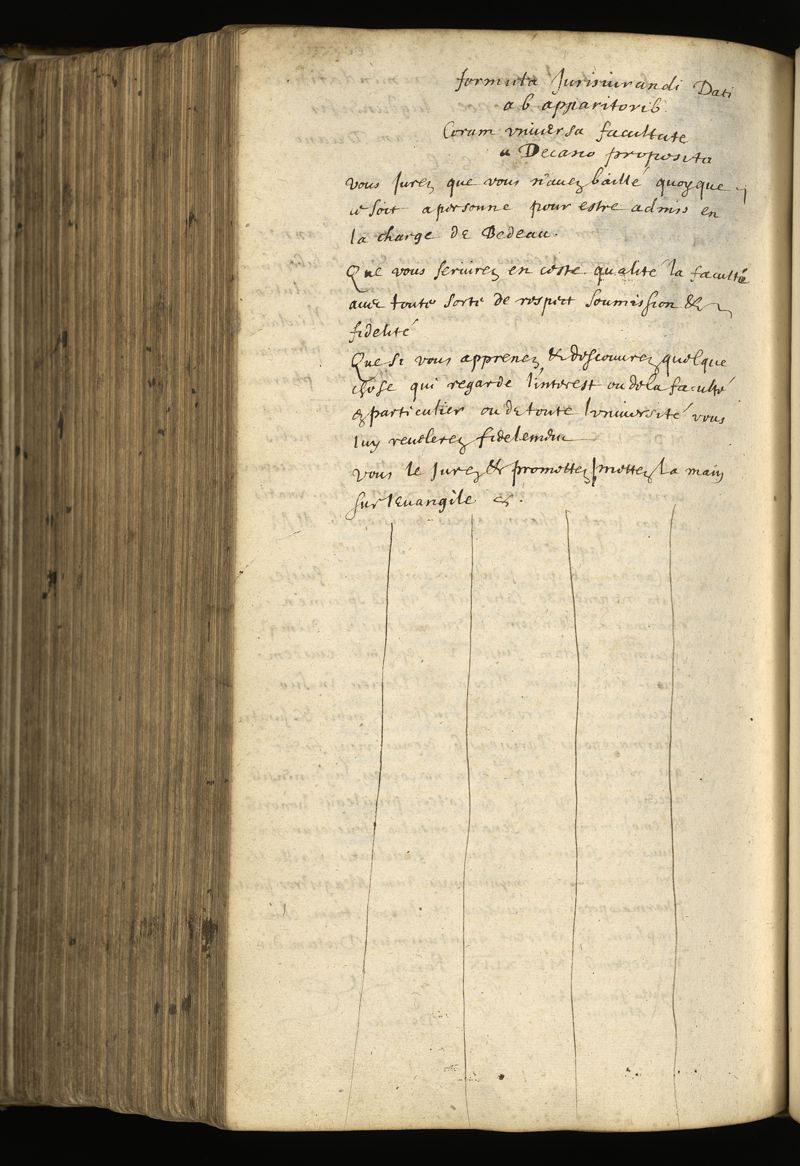 formula Jurisiurandi Dati
ab apparitorib.
Coram vniuersa facultate
a Decano proposita
vous Jurez que vous n'auez baillé quoy que
ce soit a personne pour estre admis en
la charge de Bedeau.
Que vous seruirez en ceste qualité la faculté
auec toute sorte de respect soumission &
fidelité
Que si vous apprenez & descouurez quelque
chose qui regarde l'interest ou de la faculté
en particulier ou de toute l'vniuersité vous
luy reuelerez fidelement
vous le Jurez & promettez mettez la main
sur l'Euangile &.